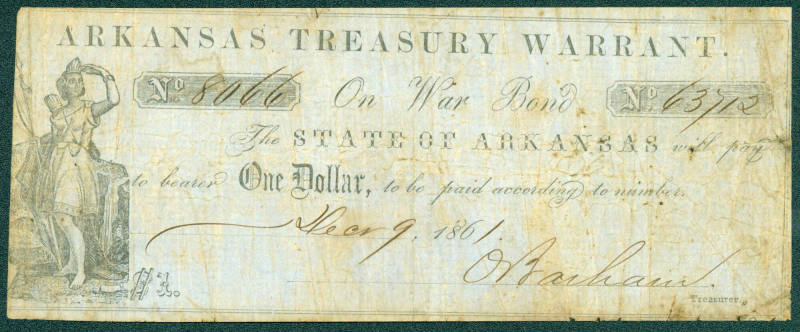 ARKANSAS TREASURY WARRANT.
No 8066 On War Bond No 63712
The STATE OF ARKANSAS will pay
to bearer One Dollar, to be paid according to number.
Decr 9, 1861.
$1.
Treasurer.